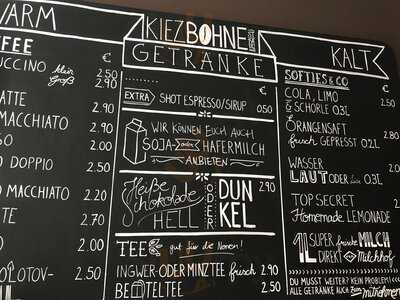 WARM
FFEE
€
UCCINO klein 2.50
Groß 2.90
ATTE 2.90
MACCHIATO 2.90
SO
2.00
O DOPPIO 2.50
MACCHIATO 2.20
TTE 2.70
OLOTOV-
KIEZBOHNE
GETRÄNKE
€
EXTRA SHOT ESPRESSO/SIRUP 0.50
WIR KÖNNEN EUCH AUCH
SOJA- oder HAFERMILCH
ANBIETEN
Heiße Schokolade
HELL
ODER
DUNKEL
2.90
TEE gut für die Nerven!
INGWER- ODER MINZTEE frisch 2.90
BEUTELTEE 2.50
KALT
SOFTIES & CO
€
COLA, LIMO 2.50
& SCHORLE 0.3L
ORANGENSAFT 2.80
frisch GEPRESST 0.2L
WASSER
LAUT ODER leise 0.3L
TOP SECRET
Homemade LEMONADE
1L SUPER frische MILCH
DIREKT Milchhof
DU MUSST WEITER? KEIN PROBLEM!
ALLE GETRÄNKE AUCH zum mitnehmen